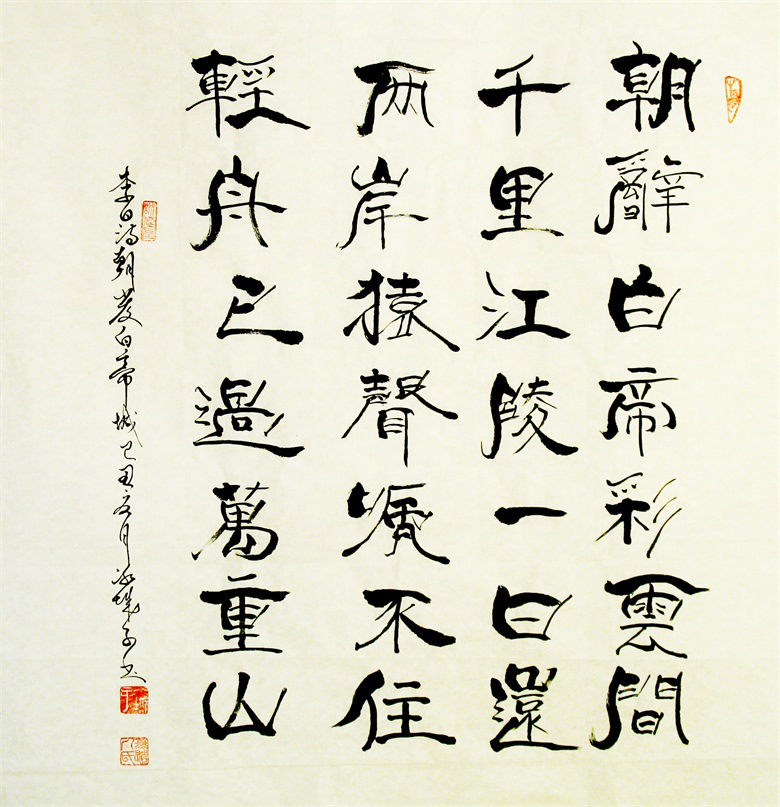 朝辭白帝彩雲間
千里江陵一日還
两岸猿聲嗁不住
輕舟已過萬重山
李白詩朝發白帝城己丑月子书